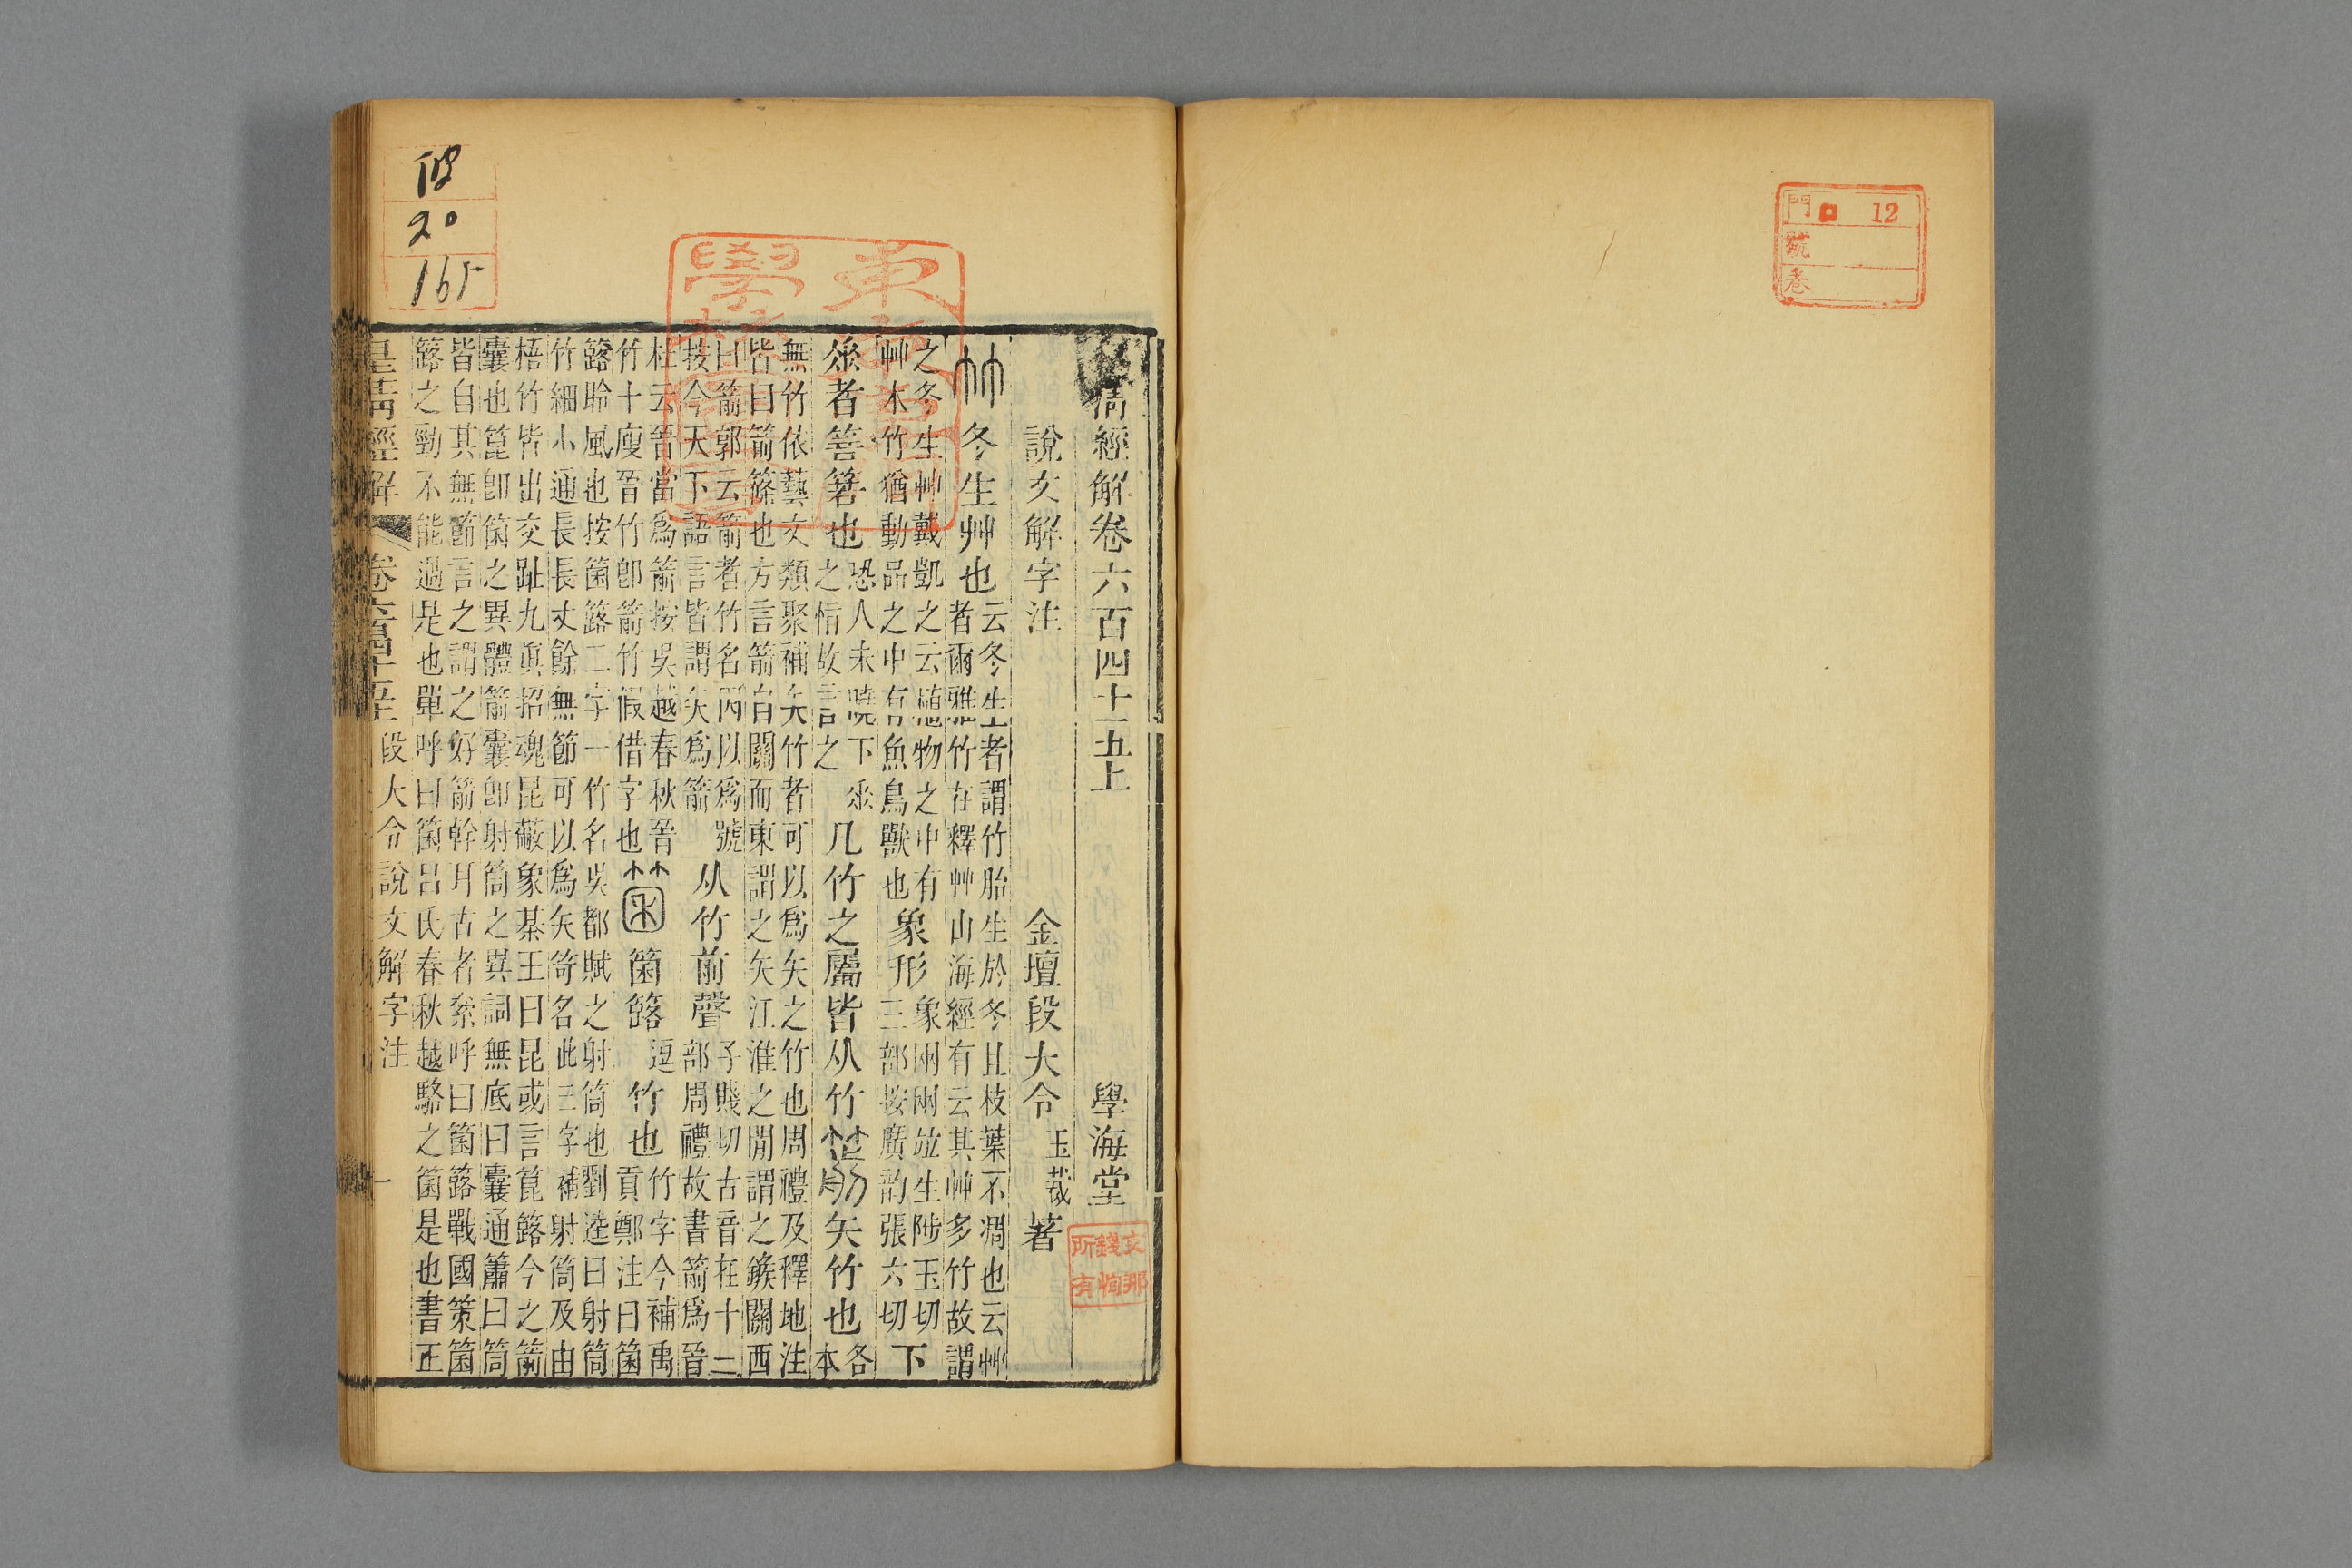 門 12
號
卷
清經解卷六百四十五上 學海堂
說文解字注 金壇段大令玉裁著
冬生艸也
云冬生者謂竹胎生於冬且枝葉不凋也云艸
者爾雅竹在釋艸山海經有云其艸多竹故謂
之冬生艸戴凱之云植物之中有
艸木竹猶動品之中有魚鳥獸也
象形
象㒳㒳竝生陟玉切
三部按廣韵張六切
下
𠂹者箁箬也
恐人未曉下𠂹
之恉故言之
凡竹之屬皆从竹
矢竹也
各
本
無竹依藝文類聚補矢竹者可以爲矢之竹也周禮及釋地注
皆曰箭篠也方言箭自關而東謂之矢江淮之閒謂之鍭關西
曰箭郭云箭者竹名因以爲號
按今天下語言皆謂矢爲箭
从竹前聲
子賤切古音在十二
部周禮故書箭爲晉
杜云晉當爲箭按吳越春秋晉
竹十廋晉竹卽箭竹假借字也
箘
箘簬
逗
竹也
竹字今補禹
貢鄭注曰箘
簬聆風也按箘簬二字一竹名吳都賦之射筒也劉逵曰射筒
竹細小通長長丈餘無節可以爲矢笴名此三字補射筒及由
梧竹皆出交趾九眞招魂昆蔽象棊王曰昆或言箟簬今之箭
囊也箟卽箘之異體箭囊卽射筒之異詞無底曰囊通簫曰筒
皆自其無節言之謂之好箭幹耳古者絫呼曰箘簬戰國策箘
簬之勁不能過是也單呼曰箘呂氏春秋越駱之箘是也書正
皇清經解 卷六百四十五上 段大令說文解字注 一
20
165
文那
錢恂
所有